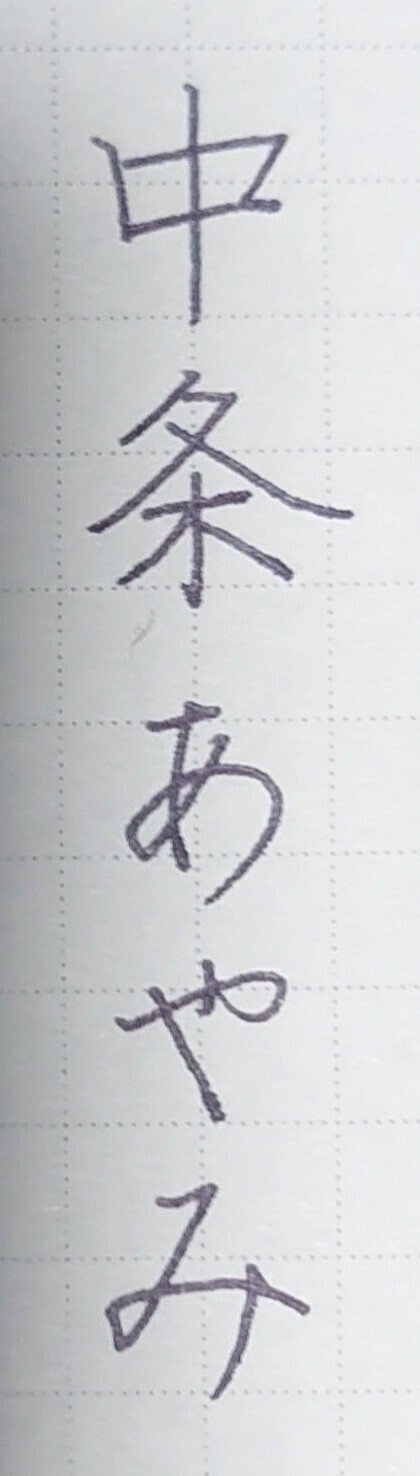 中条あやみ